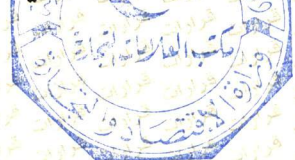 مكتب العلامات التجارية
وزارة الاقتصاد والتجارة